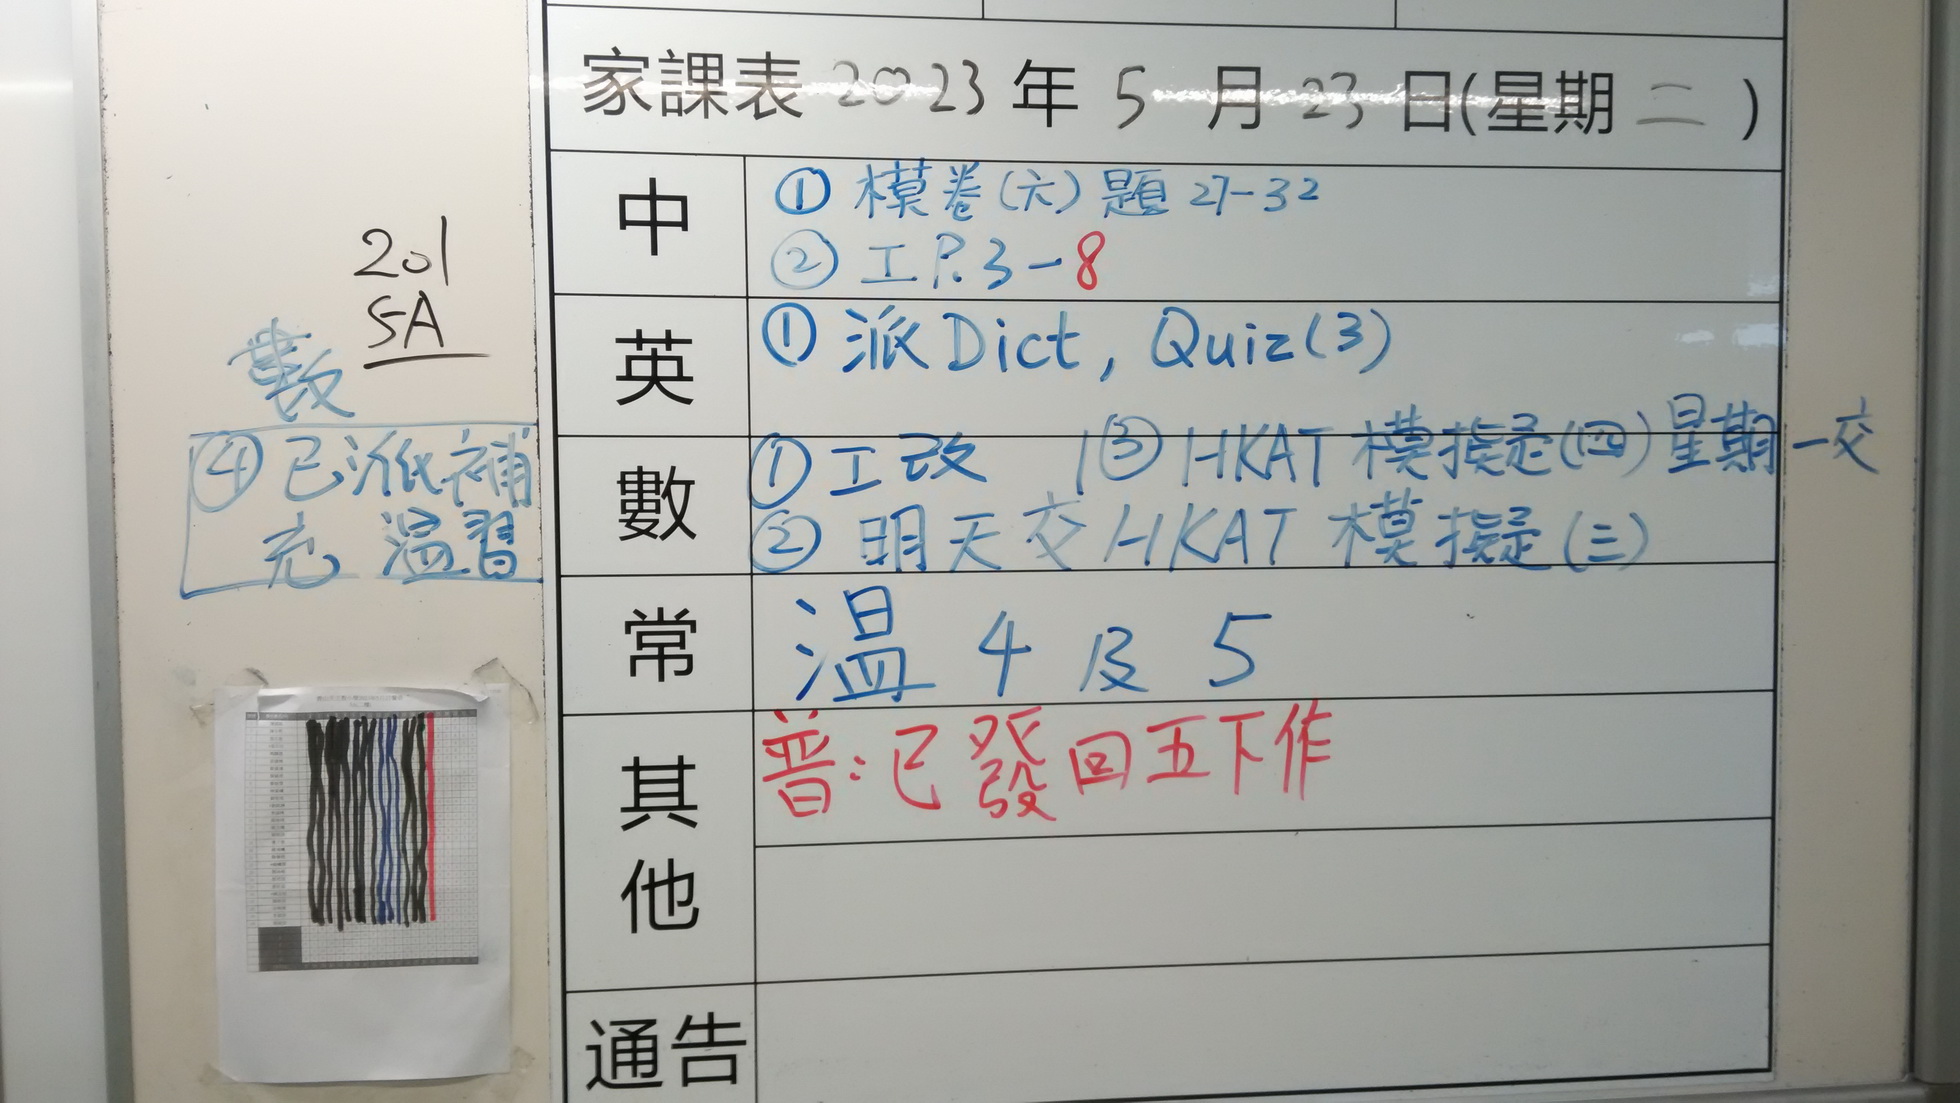 家課表 2023 年 5 月 23 日(星期 二 )
中
① 模卷(六) 題 27-32
② 工 P.3-8
201
5A
英
① 派 Dict, Quiz(3)
數
① 工改 | ③ HKAT 模擬(四) 星期一交
② 明天交 HKAT 模擬(三)
數
④ 已派補
充 溫習
常
溫 4 及 5
其他
普:已發回五下作
通告